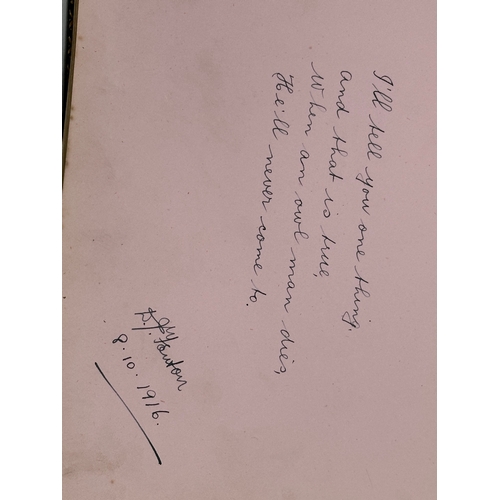 I'll tell you one thing.
and that is true,
When an owl man dies,
He'll never come to.
8.10.1916.